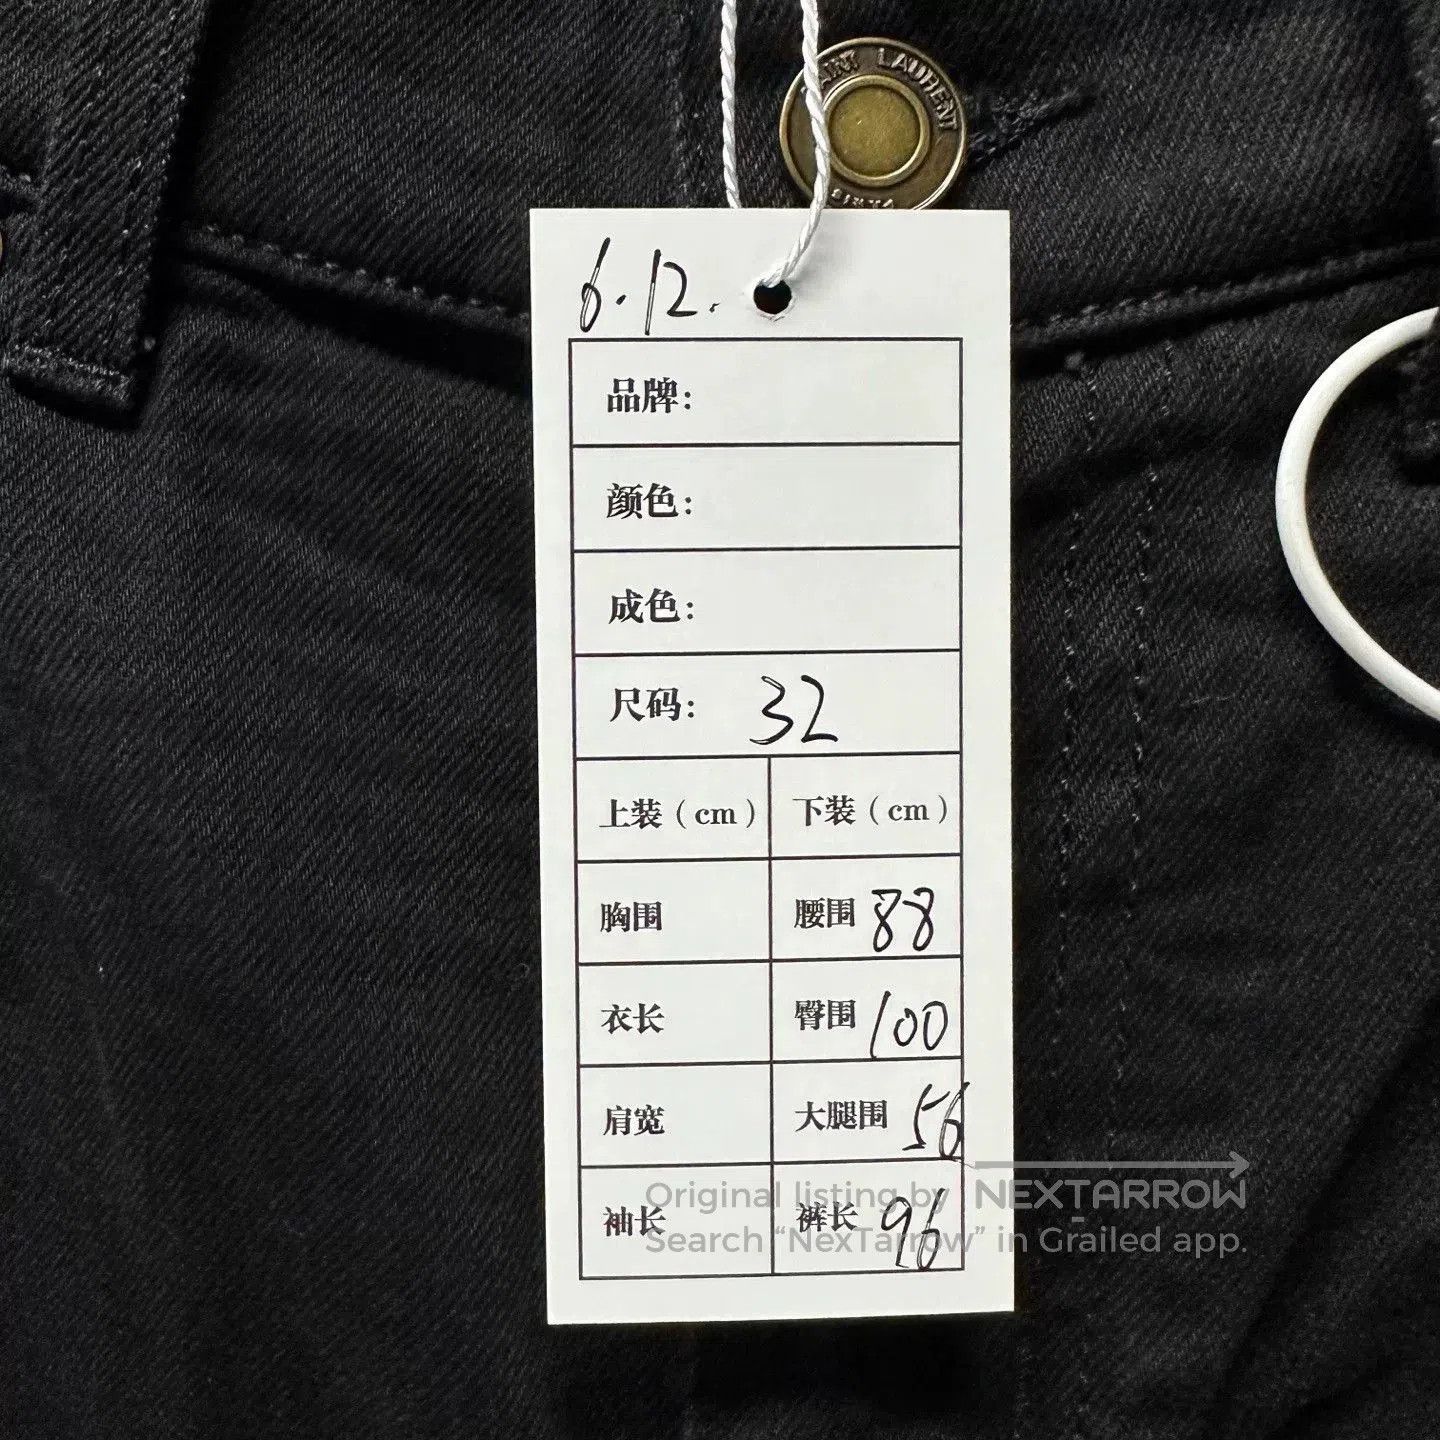 SAINT LAURENT
PARIS
6.12.
品牌:
颜色:
成色:
尺码: 32
上装（cm） 下装（cm）
胸围 腰围 88
衣长 臀围 100
肩宽 大腿围 56
袖长 裤长 96
Original listing by NEXTARROW
Search “NexTarrow” in Grailed app.